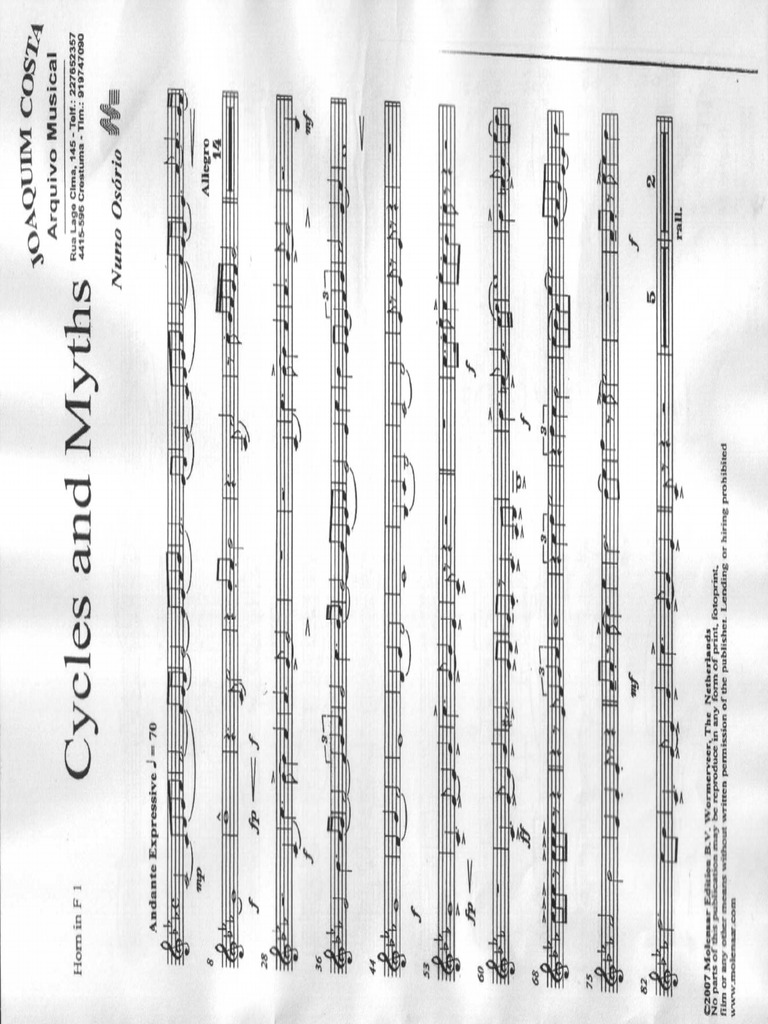 JOAQUIM COSTA
Arquivo Musical
Rua Lago Cima, 145 - Telf.: 227652357
4415-596 Crestuma - Tlm.: 919747090
Cycles and Myths
Horn in F 1
Nuno Osório
Andante Expressive ♩ = 70
mp
Allegro
8
14
f
fp
f
28
f
mf
36
3
3
44
f
53
fp
f
60
ff
f
68
3
3
3
75
mf
f
82
5
2
rall.
©2007 Molenaar Edition B.V. Wormerveer, The Netherlands
No parts of this publication may be reproduce in any form of print, fotoprint,
film or any other means without written permission of the publisher. Lending or hiring prohibited
www.molenaar.com